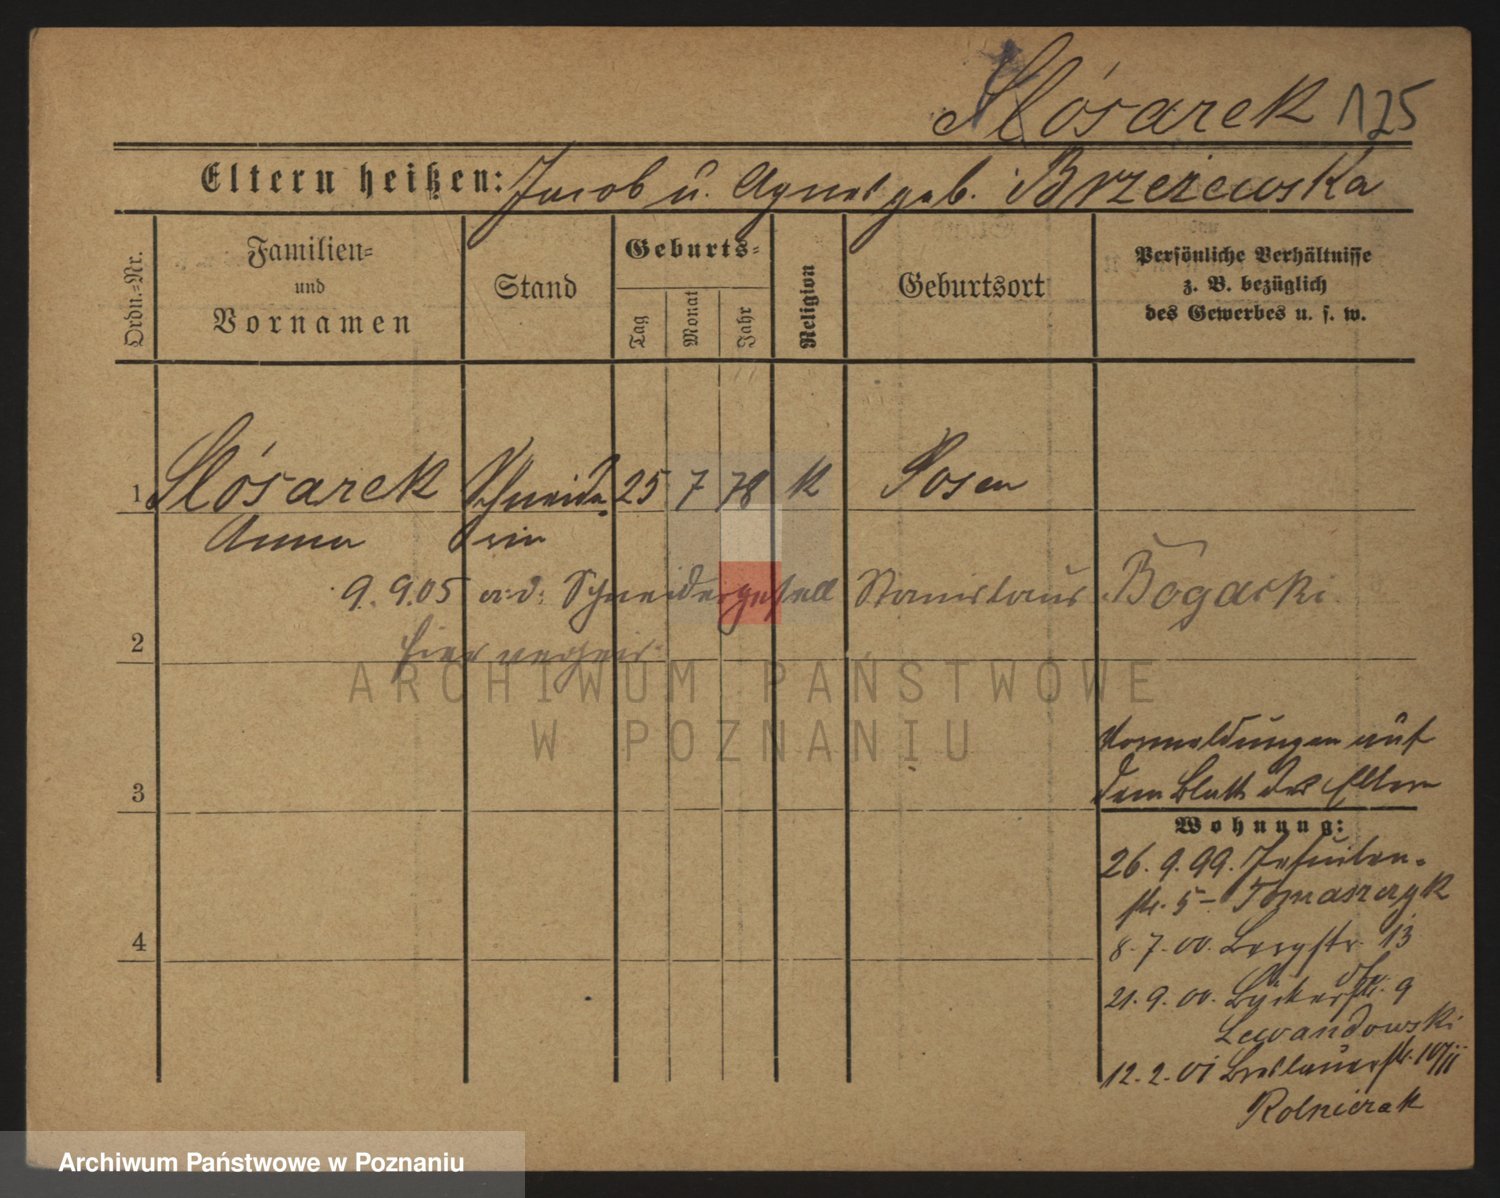 Slósarek 125
Eltern heißen: Jacob u. Agnes geb. Brzeżewska
Ordn.-Nr.
Familien-
und
Vornamen
Stand
Geburts-
Tag
Monat
Jahr
Religion
Geburtsort
Persönliche Verhältnisse
z. B. bezüglich
des Gewerbes u. s. w.
1 Slósarek Schneide- 25 7 78 K Posen
Anna rin
9. 9. 05 Schneidergesell Stanislaus Bogacki
2 hier
ARCHIWUM PAŃSTWOWE
W POZNANIU
3
4
Vormeldungen auf
dem Blatt der Eltern
Wohnung:
26. 9. 99. Jesuiten-
str. 5 - Tomaszczyk
8. 7. 00. Bergstr. 13
21. 9. 00. Bäckerstr. 9
Lewandowski
12. 2. 01 Breslauerstr. 10/II
Rolniczak
Archiwum Państwowe w Poznaniu